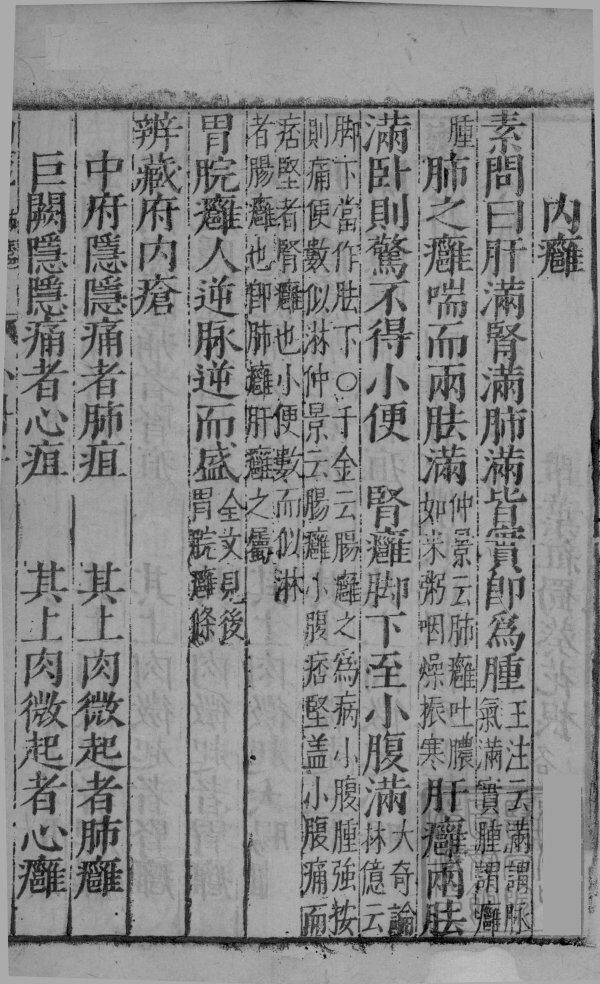 內癰
素問曰肝滿腎滿肺滿皆實即為腫王注云滿謂脉氣滿實腫謂癰
腫肺之癰喘而兩胠滿仲景云肺癰吐膿如米粥咽燥振寒肝癰兩胠
滿卧則驚不得小便 腎癰脚下至小腹滿大奇論林億云
脚下當作胠下○千金云腸癰之為病小腹腫強按
則痛便數似淋仲景云腸癰小腹痞堅盖小腹痛而
痞堅者腎癰也小便數而似淋
者腸癰也即肺癰肝癰之屬
胃脘癰人逆脉逆而盛全文見後胃脘癰條
辨藏府內瘡
中府隱隱痛者肺疽 其上肉微起者肺癰
巨闕隱隱痛者心疽 其上肉微起者心癰